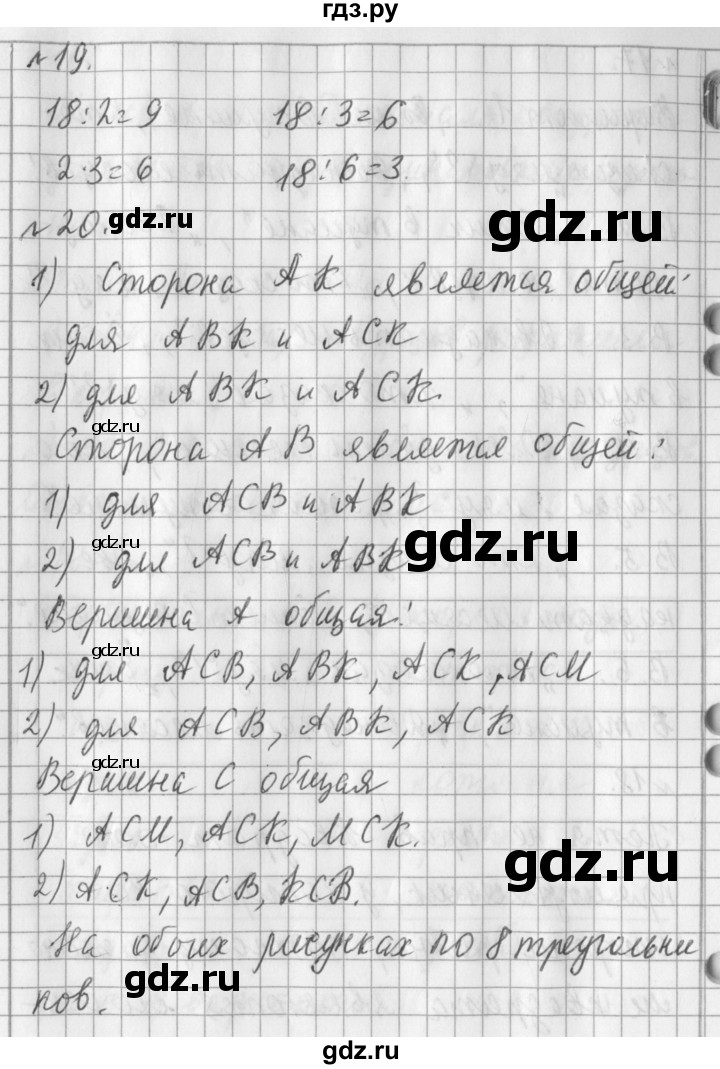 гдз.ру
№19.
18:2=9 18:3=6
2·3=6 18:6=3.
№20.
1) Сторона АК является общей:
для АВК и АСК
2) для АВК и АСК.
Сторона АВ является общей:
1) для АСВ и АВК
2) для АСВ и АВК
Вершина А общая:
1) для АСВ, АВК, АСК, АСМ
2) для АСВ, АВК, АСК
Вершина С общая
1) АСМ, АСК, МСК.
2) АСК, АСВ, КСВ.
На обоих рисунках по 8 треугольни
ков.
gdz.ru
gdz.ru
gdz.ru
gdz.ru
gdz.ru
gdz.ru
gdz.ru
gdz.ru
gdz.ru
gdz.ru
gdz.ru